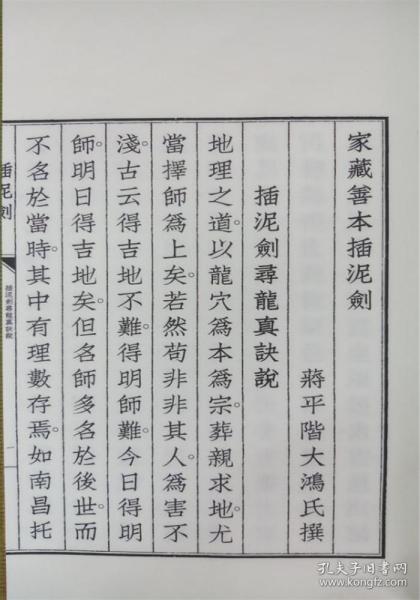 家藏善本插泥劍
蔣平階大鴻氏撰
插泥劍尋龍真訣說
地理之道。以龍穴為本為宗。葬親求地。尤
當擇師為上矣。若然苟非非其人。為害不
淺。古云得吉地不難。得明師難。今日得明
師。明日得吉地矣。但名師多名於後世。而
不名於當時。其中有理數存焉。如南昌托
插泥劍
插泥劍尋龍真訣說
一
孔夫子旧书网